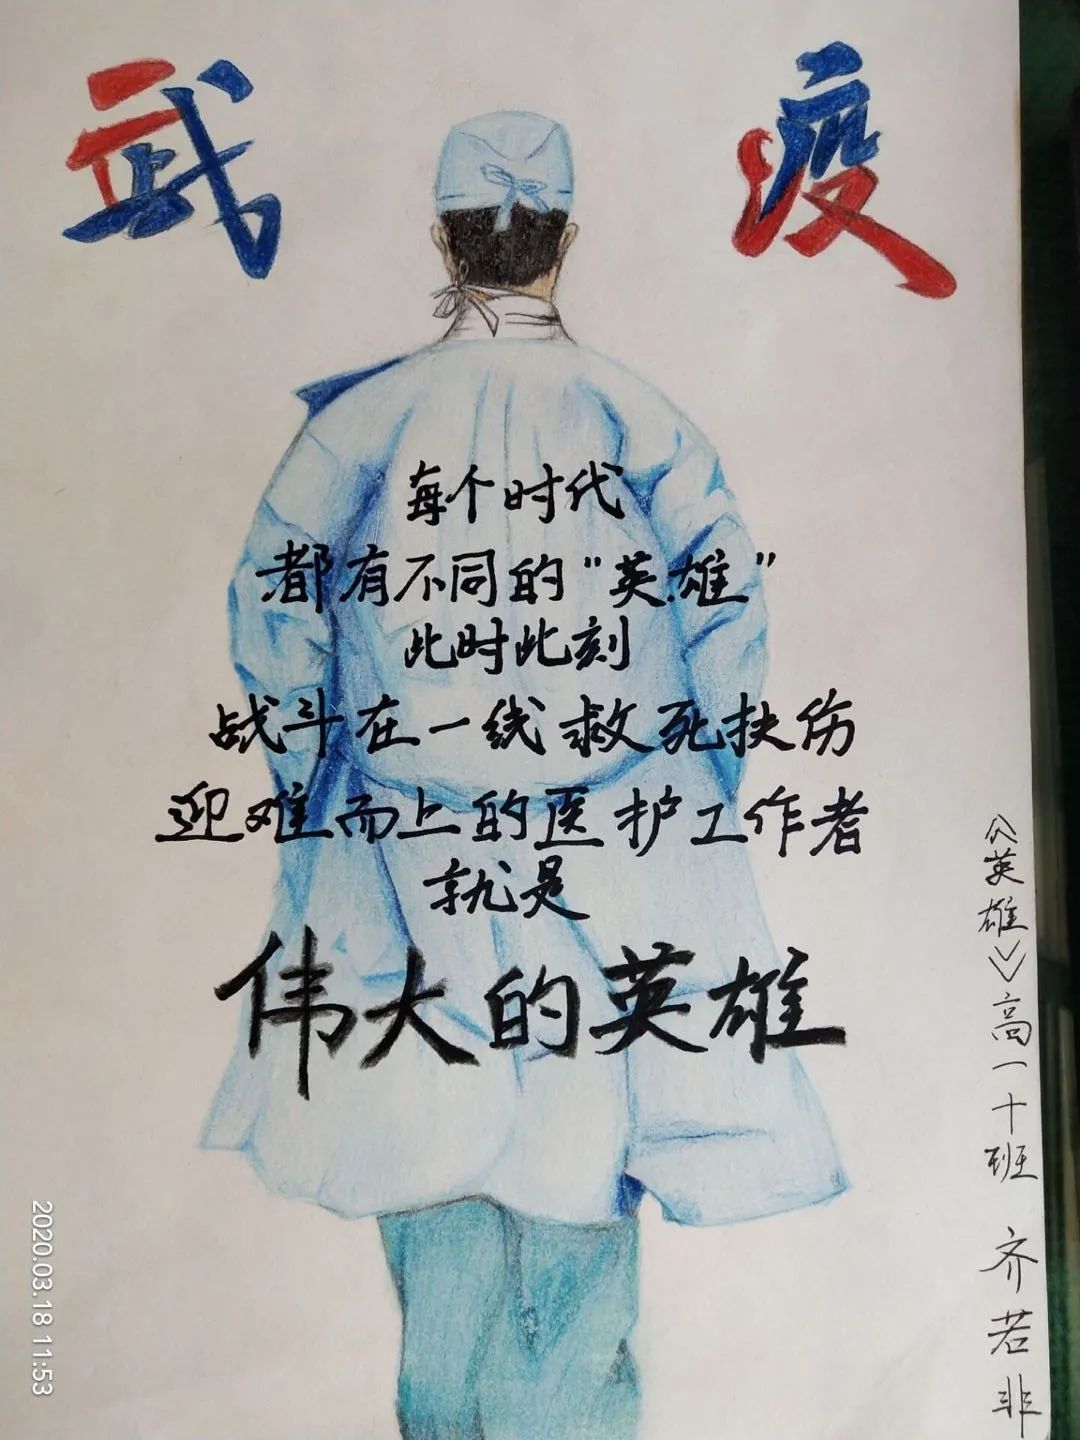 武 疫
每个时代
都有不同的“英雄”
此时此刻
战斗在一线救死扶伤
迎难而上的医护工作者
就是
伟大的英雄
《英雄》高一十班 齐若非
2020.03.18 11:53